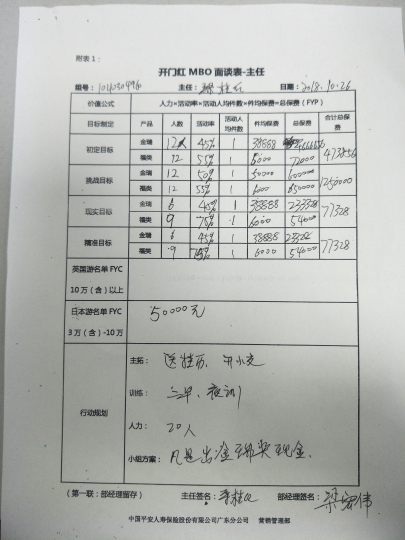 附表1：
开门红 MBO 面谈表-主任
组号： 主任： 日期：2018.10.26
价值公式 人力×活动率×活动人均件数×件均保费=总保费（FYP）
目标制定 产品 人数 活动率 活动人均件数 件均保费 总保费 合计总保费
初定目标 金瑞 12人 45% 1 38888
福类 12 55% 1 6000 72000
挑战目标 金瑞 12 50% 1 50000 600000 1250000
福类 12 55% 1 6000 650000
现实目标 金瑞 6 45% 1 38888 233328 77328
福类 9 75% 1 6000 54000
精准目标 金瑞 6 45% 1 38888 77328
福类 9 75% 1 6000 54000
英国游名单 FYC
10万（含）以上
日本游名单 FYC
3万（含）-10万
50000元
行动规划
主拓： 送挂历、
训练： 三早、夜训
人力： 20人
小组方案： 凡是出金瑞奖现金.
（第一联：部经理留存） 主任签名： 部经理签名：梁宏伟
中国平安人寿保险股份有限公司广东分公司 营销管理部